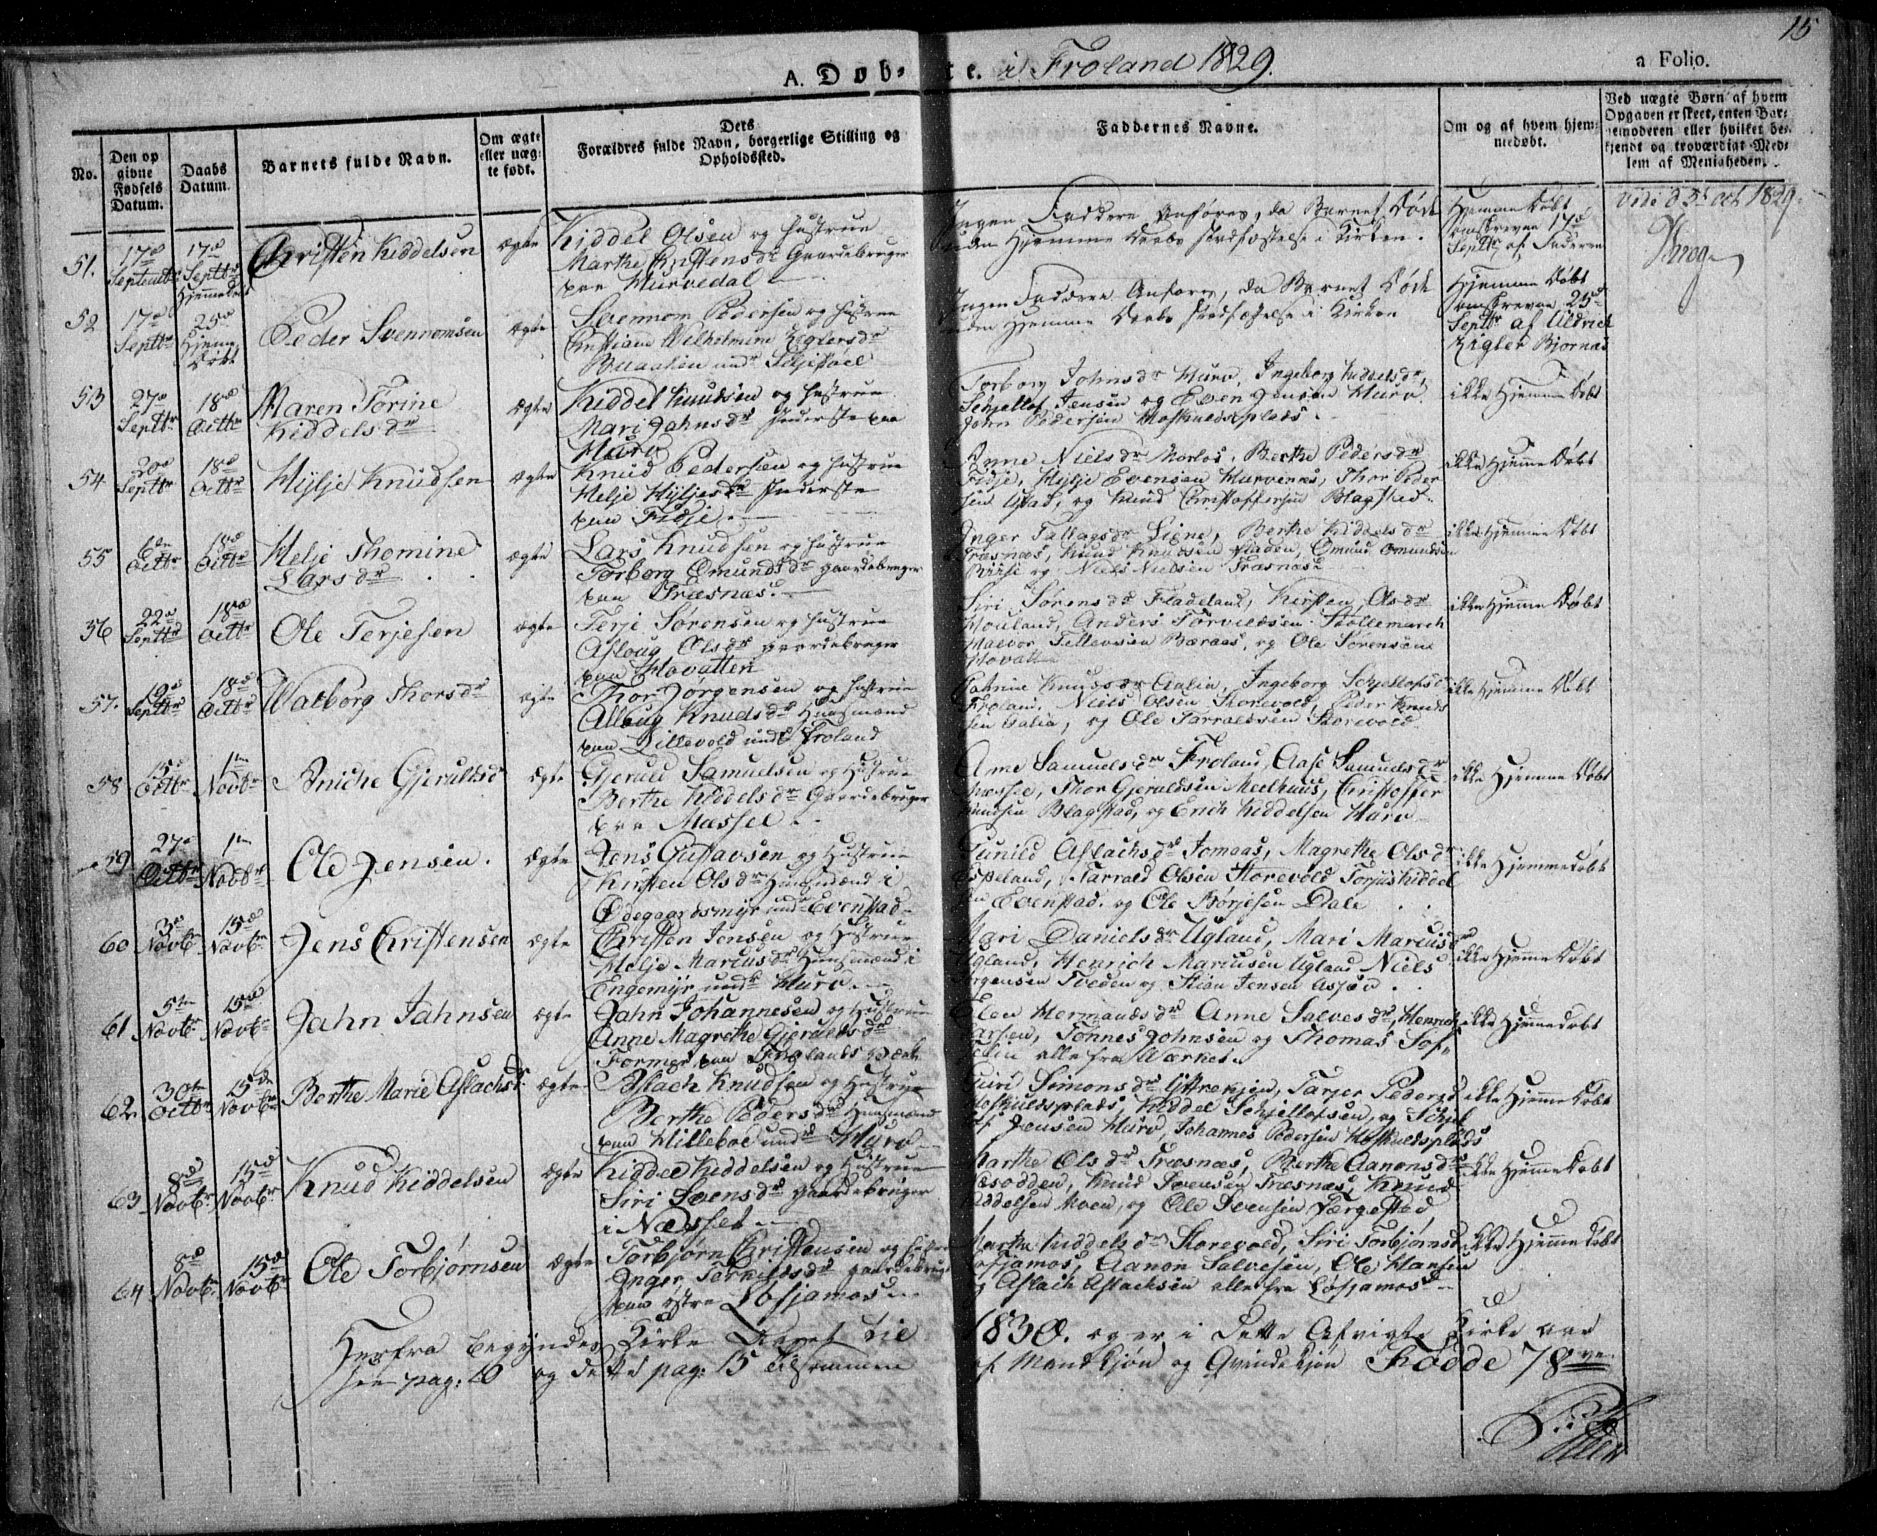 15
A. Døb- te. i Froland 1829.
a Folio.
No.
Den op
givne
Fødsels
Datum.
Daabs
Datum.
Barnets fulde Navn.
Om ægte
eller uæg-
te født.
Ders
Forældres fulde Navn, borgerlige Stilling og
Opholdssted.
Faddernes Navne.
Om og af hvem hjem
medøbt.
Ved uægte Børn af hvem
Opgaven er skeet, enten Bar-
nemoderen eller hvilket be-
kjendt og troværdigt Med-
lem af Menigheden.
51.
17de
Septembr
17de
Septbr
Hjemmedøbt
Christen Kiddelsen
ægte
Kiddel Olsen og Hustrue
Marthe Knstensdr Gaardebruger
paa Hurvedal
Ingen Faddere Anføres, da Barnet Døde
inden Hjemme Daabs stadfæstelse i Kirken.
Hjemme Døbt
17d
Septbr af Faderen
vidi d 5t oct 1829
52
17de
Septbr
25de
Hjemme
Døbt
Peder Svennomsen
ægte
Svennom Pedersen og Hustrue
Christiane Wilhelmine Ziglersdr
Ingen Faddere Anføres, da Barnet Døde
inden Hjemme Daabs stadfæstelse i Kirken
Hjemme Døbt
25d
Septbr af Uldrich
Zigler Bjornaas
53
27de
Septbr
18de
Octbr
Maren Torine
Kiddelsdr
Ægte
Kiddel Knudsen og Hustrue
Mari Jahnsdr Inderste paa
Hurv
Torborg Johnsdr Hurv, Ingeborg Kiddelsdr,
Schjellof Jensen og Even Jensen Hurv
John Pedersen Hofkuldsplads.
ikke Hjemme Døbt
54
20de
Septbr
18de
Octbr
Hylje Knudsen
ægte
Knud Pedersen og Hustrue
Helje Hyljesdr Inderste
paa Fidje.
Anne Nielsdr Morlos, Berthe Pedersdr
Fidje, Hylje Evensen Hurvenes, Thor Peder
sen Ugland, og Knud Christoffersen Blagstad.
ikke Hjemme Døbt
55
Octbr
18de
Octbr
Helje Thomine
Larsdr
ægte
Lars Knudsen og Hustrue
Torborg Omundsdr gaardebruger
paa Træsnæs.
Inger Tallagsdr Ligne, Berthe Kiddelsdr
Træsnæs, Knud Knudsen Fladen, Omund Omundsen
Riise og Niels Nielsen Træsnæs
ikke Hjemme Døbt
56
22de
Septbr
18de
Octbr
Ole Terjesen
ægte
Terje Sørensen og Hustrue
Asloug Olsdr gaardebruger
paa Hovatten
Siri Sørensdr Fladeland, Kirsten Olsdr
Mouland, Anders Torvildsen Stollemarch
Halvor Tellevsen Børaas, og Ole Sørensen
Hovatten
ikke Hjemme Døbt
57.
19de
Septbr
18de
Octbr
Walborg Thorsdr
ægte
Thor Jørgensen og Hustrue
Alloug Knudsdr Huusmand
paa Lillevold undr Froland
Cathrine Knudsdr Aalia, Ingeborg Schjellofsd
Froland, Niels Olsen Storevold, Peder Knud
sen Aalia, og Ole Tarraldsen Storevold
ikke Hjemme Døbt
58
15de
Octbr
1ste
Novbr
Aniche Gjeruldsd
Ægte
Gjeruld Samuelsen og Hustrue
Berthe Kiddelsdr Gaardebruger
paa Mæssel.
Ane Samuelsdr Froland, Aase Samuelsdr
Messel, Thor Gjeruldsen Meelhuus, Christoffer
Knudsen Blagstad, og Erich Kiddelsen Hurv
ikke Hjemme Døbt
59
27de
Octbr
1ste
Novbr
Ole Jensen.
Ægte
Jens Gustavsen og Hustrue
Kirsten Olsdr Huusmand i
Ødegaardsmyr undr Evenstad
Gunild Aslachsdr Jomaas, Magrethe Olsdr
Espeland, Tarrald Olsen Storevold Torjus Kiddel
sen Evenstad. og Ole Børjesen Dale
ikke Hjemmedøbt
60
3de
Novbr
15de
Novbr
Jens Christensen
ægte
Christen Jensen og Hustrue
Helje Mariusdr Huusmand i
Engemyr undr Hurv.
Mari Danielsdr Ugland, Mari Mariusdr
Ugland, Henrich Mariusen Ugland Niels
Jørgensen Tveden og Stian Jensen Assev.
ikke Hjemme Døbt
61
5te
Novbr
15de
Novbr
Jahn Jahnsen
ægte
Jahn Johannesen og Hustrue
Anne Magrethe Gjeruldsdr
Former paa Frolands Værk
Elen Hermandsdr Anne Salvesdr, Henrich
Larsen, Tønnes Johnsen og Thomas Tof-
telin alle fra Wærket.
ikke Hjemmedøbt
62.
30te
Octbr
15de
Novbr
Berthe Marie Aslachsdr
ægte
Aslach Knudsen og Hustrue
Berthe Pedersdr Huusmand
paa Hilleboe undr Hurv
Guri Simonsdr Yttrekjøn, Tarjer Pedersd
Hofkuldsplads, Kiddel Schjellofsen, og Schjel
lof Jensen Hurv, Johannes Pedersen Hofkuldsplads
ikke Hjemme Døbt
63
8de
Novbr
15de
Novbr
Knud Kiddelsen
ægte
Kiddel Kiddelsen og Hustrue
Siri Svensdr gaardebruger
i Næsset
Marthe Olsdr Træsnæs, Berthe Aanonsdr
Næsodden, Knud Svensen Træsnæs, Knud
Kiddelsen Moen, og Ole Svensen Færgested
ikke Hjemme Døbt
64
8de
Novbr
15de
Novbr
Ole Torbjørnsen
ægte
Torbjørn Christensen og Hustrue
Inger Terkildsdr gaardebruger
paa østre Løfsjamos
Marthe Kiddelsdr Storevold, Siri Torbjørnsd
Løfsjamos, Aanon Salvesen, Ole Hansen
og Aslach Aslachsen alle fra Løfsjamos
ikke Hjemme Døbt
Herfra begyndes Kirke Aaret til 1830. og er i dette Afvigte Kirke Aar
fra pag: 10 og dette pag: 15 tilsammen af Mandkjøn og Qvindekjøn Fødde 78ve